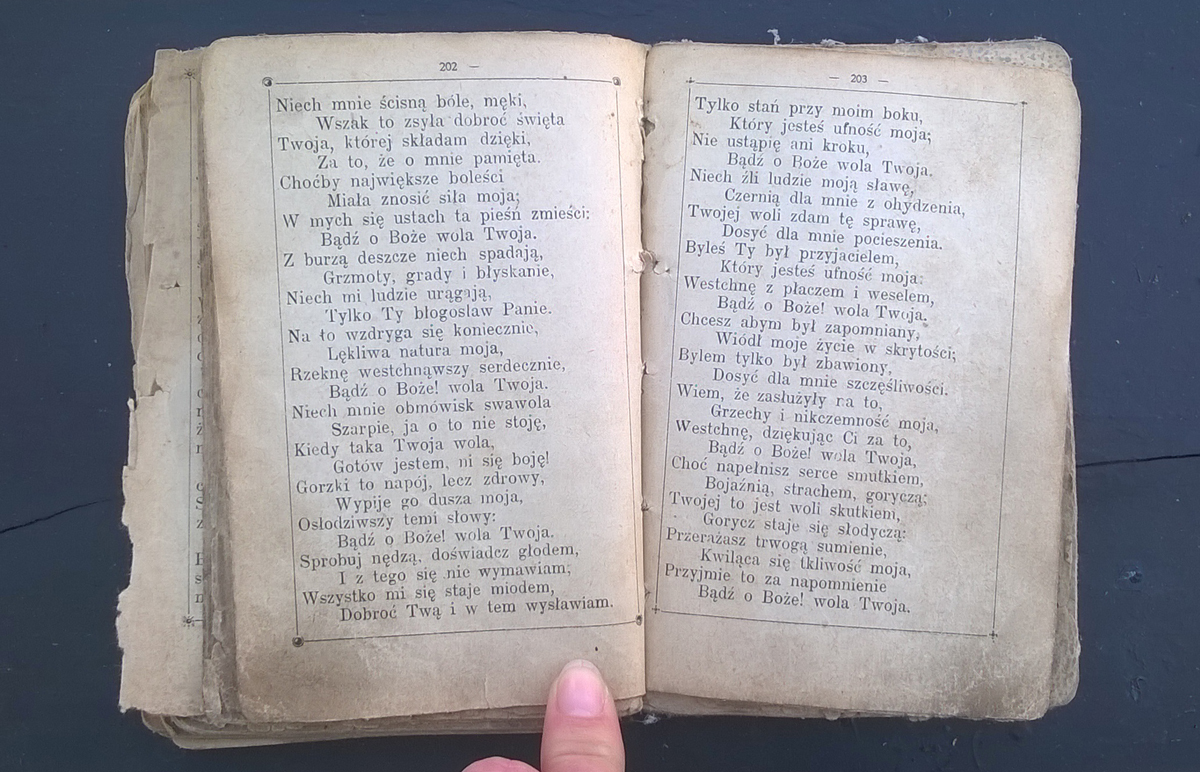 202 —
Niech mnie ścisną bóle, męki,
Wszak to zsyła dobroć święta
Twoja, której składam dzięki,
Za to, że o mnie pamięta.
Choćby największe boleści
Miała znosić siła moja;
W mych się ustach ta pieśń zmieści:
Bądź o Boże wola Twoja.
Z burzą deszcze niech spadają,
Grzmoty, grady i błyskanie,
Niech mi ludzie urągają,
Tylko Ty błogosław Panie.
Na to wzdryga się koniecznie,
Lękliwa natura moja,
Rzeknę westchnąwszy serdecznie,
Bądź o Boże! wola Twoja.
Niech mnie obmówisk swawola
Szarpie, ja o to nie stoję,
Kiedy taka Twoja wola,
Gotów jestem, ni się boję!
Gorzki to napój, lecz zdrowy,
Wypije go dusza moja,
Osłodziwszy temi słowy:
Bądź o Boże! wola Twoja.
Sprobuj nędzą, doświadcz głodem,
I z tego się nie wymawiam;
Wszystko mi się staje miodem,
Dobroć Twą i w tem wysławiam.
— 203 —
Tylko stań przy moim boku,
Który jesteś ufność moja;
Nie ustąpię ani kroku,
Bądź o Boże wola Twoja.
Niech źli ludzie moją sławę,
Czernią dla mnie z ohydzenia,
Twojej woli zdam tę sprawę,
Dosyć dla mnie pocieszenia.
Byleś Ty był przyjacielem,
Który jesteś ufność moja:
Westchnę z płaczem i weselem,
Bądź o Boże! wola Twoja.
Chcesz abym był zapomniany,
Wiódł moje życie w skrytości;
Bylem tylko był zbawiony,
Dosyć dla mnie szczęśliwości.
Wiem, że zasłużyły na to,
Grzechy i nikczemność moja,
Westchnę, dziękując Ci za to,
Bądź o Boże! wola Twoja,
Choć napełnisz serce smutkiem,
Bojaźnią, strachem, goryczą;
Twojej to jest woli skutkiem,
Gorycz staje się słodyczą:
Przerażasz trwogą sumienie,
Kwiląca się tkliwość moja,
Przyjmie to za napomnienie
Bądź o Boże! wola Twoja.